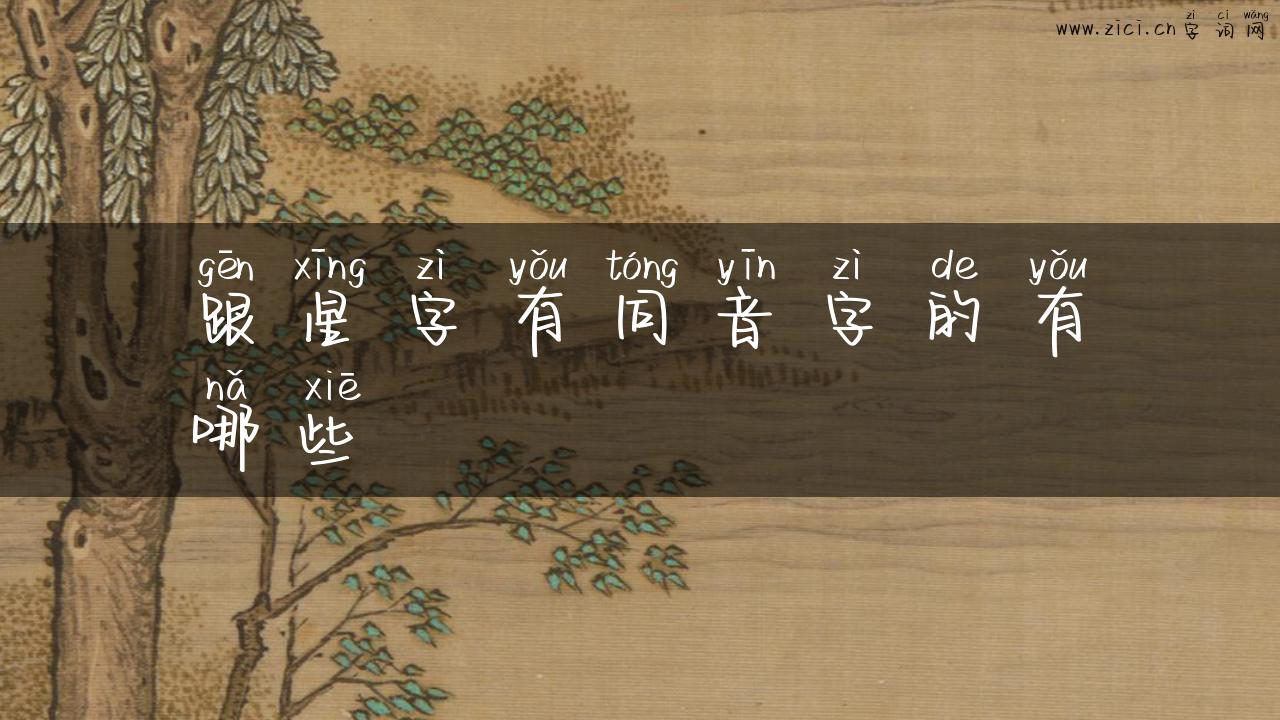 zì cí wǎng
www.zici.cn 字词网
gēn xīng zì yǒu tóng yīn zì de yǒu
跟星字有同音字的有
nǎ xiē
哪些